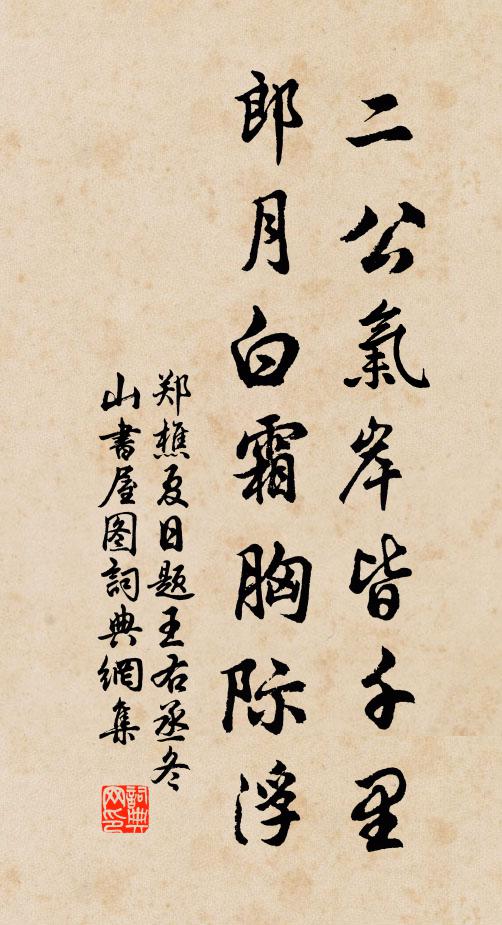 二公氣岸皆千里
郎月白霜胸际浮
郑樵夏日题王右丞冬
山書屋图詞典網集
詞典網印